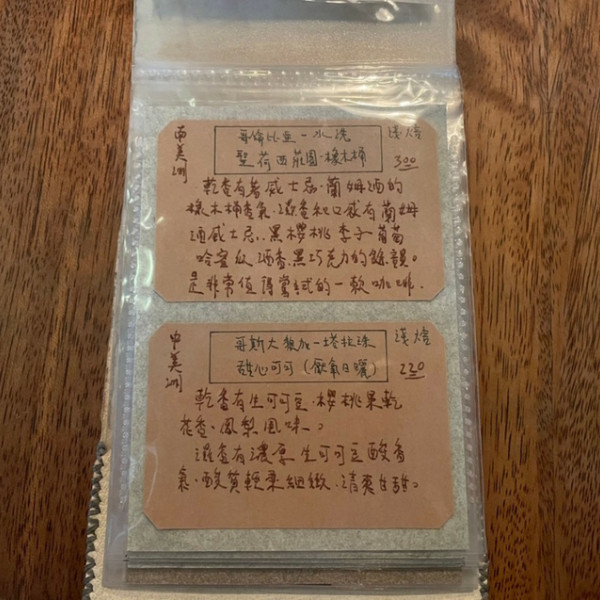 南美洲
哥倫比亞-水洗
聖荷西莊園·橡木桶
淺焙
300
乾香有著威士忌·蘭姆酒的
橡木桶香氣·濕香和口感有蘭姆
酒威士忌·黑櫻桃李子葡萄
哈蜜瓜酒香.黑巧克力的餘韻。
是非常值得嘗試的一款咖啡.
中美洲
哥斯大黎加-塔拉珠
甜心可可(厭氧日曬)
淺焙
220
乾香有生可可豆·櫻桃果乾
花香·鳳梨風味。
濕香有濃厚生可可豆酸香
氣·酸質輕柔細緻·清爽甘甜。